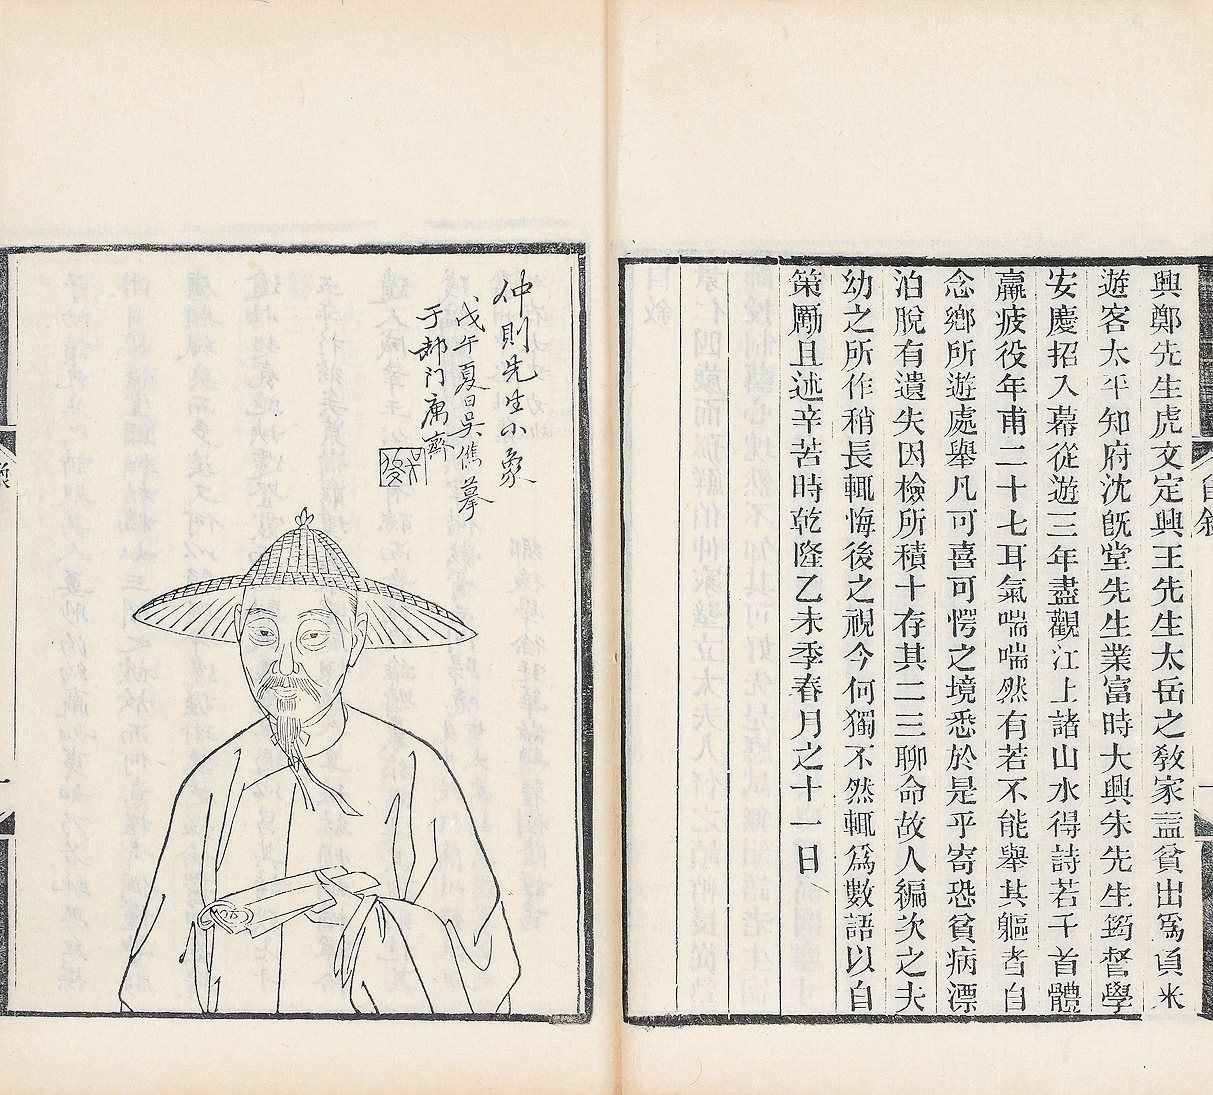 興鄭先生虎文定興王先生太岳之敎家益貧出爲負米
遊客太平知府沈旣堂先生業富時大興朱先生筠督學
安慶招入幕從遊三年盡觀江上諸山水得詩若干首體
羸疲役年甫二十七耳氣喘喘然有若不能舉其軀者自
念鄉所遊處舉凡可喜可愕之境悉於是乎寄恐貧病漂
泊脫有遺失因檢所積十存其二三聊命故人編次之夫
幼之所作稍長輒悔後之視今何獨不然輒爲數語以自
策勵且述辛苦時乾隆乙未季春月之十一日
自敘
仲則先生小象
戊午夏日吳儁摹
于都門寓齋